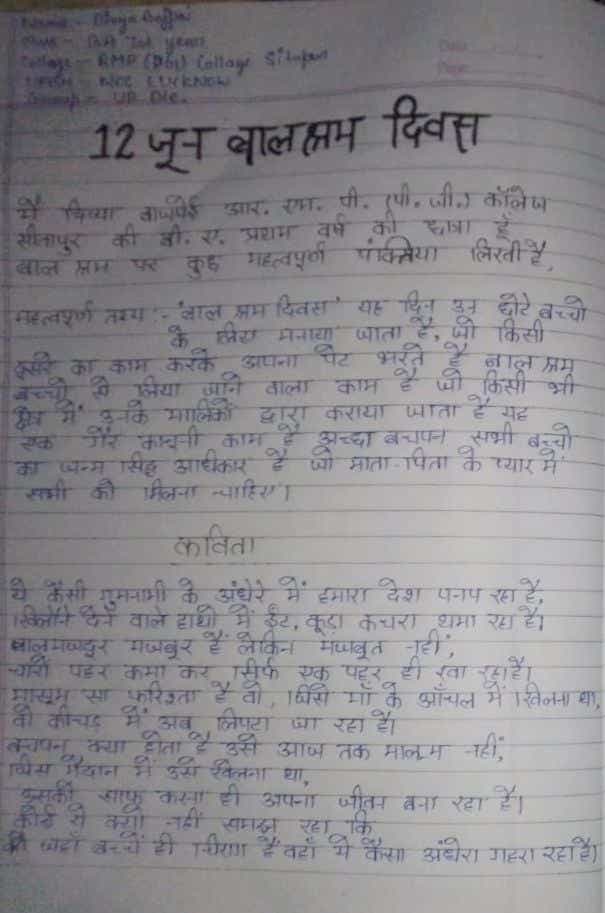 Name - Divya Bajpai
Class - BA Ist year
College - RMP (PG) College Sitapur
NCC LUCKNOW
Group - UP Dte.
Date
Page
12 जून बाल श्रम दिवस
मैं दिव्या बाजपेई आर. एम. पी. (पी. जी.) कॉलेज
सीतापुर की बी. ए. प्रथम वर्ष की छात्रा हूँ
बाल श्रम पर कुछ महत्वपूर्ण पंक्तिया लिखती है,
महत्वपूर्ण तथ्य :- 'बाल श्रम दिवस' यह दिन उन छोटे बच्चो
के लिए मनाया जाता है, जो किसी
दूसरे का काम करके अपना पेट भरते है बाल श्रम
बच्चो से लिया जाने वाला काम है जो किसी भी
क्षेत्र में उनके मालिकों द्वारा कराया जाता है यह
एक गैर कानूनी काम है अच्छा बचपन सभी बच्चो
का जन्म सिद्ध अधिकार है जो माता-पिता के प्यार में
सभी को मिलना चाहिए।
कविता
ये कैसी गुमनामी के अंधेरे में हमारा देश पनप रहा है,
खिलौने देने वाले हाथो में ईंट, कूड़ा कचरा थमा रहा है।
बालमजदूर मजबूर हैं लेकिन मजबूत नहीं,
चारो पहर कमा कर सिर्फ एक पहर ही खा रहा है।
मासूम सा फरिश्ता है वो, जिसे माँ के आँचल में खिलना था,
वो कीचड़ में अब लिपटा जा रहा है।
बचपन क्या होता है उसे आज तक मालूम नहीं,
जिस मैदान में उसे खेलना था,
उसको साफ करना ही अपना जीवन बना रहा है।
कोई ये क्यों नहीं समझ रहा कि
जहाँ बच्चें ही चिराग हैं वहाँ ये कैसा अंधेरा गहरा रहा है।